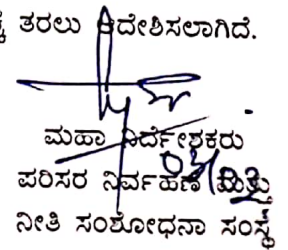 ತರಲು ಆದೇಶಿಸಲಾಗಿದೆ.
ಮಹಾ ನಿರ್ದೇಶಕರು
ಪರಿಸರ ನಿರ್ವಹಣೆ ಮತ್ತು
ನೀತಿ ಸಂಶೋಧನಾ ಸಂಸ್ಥೆ